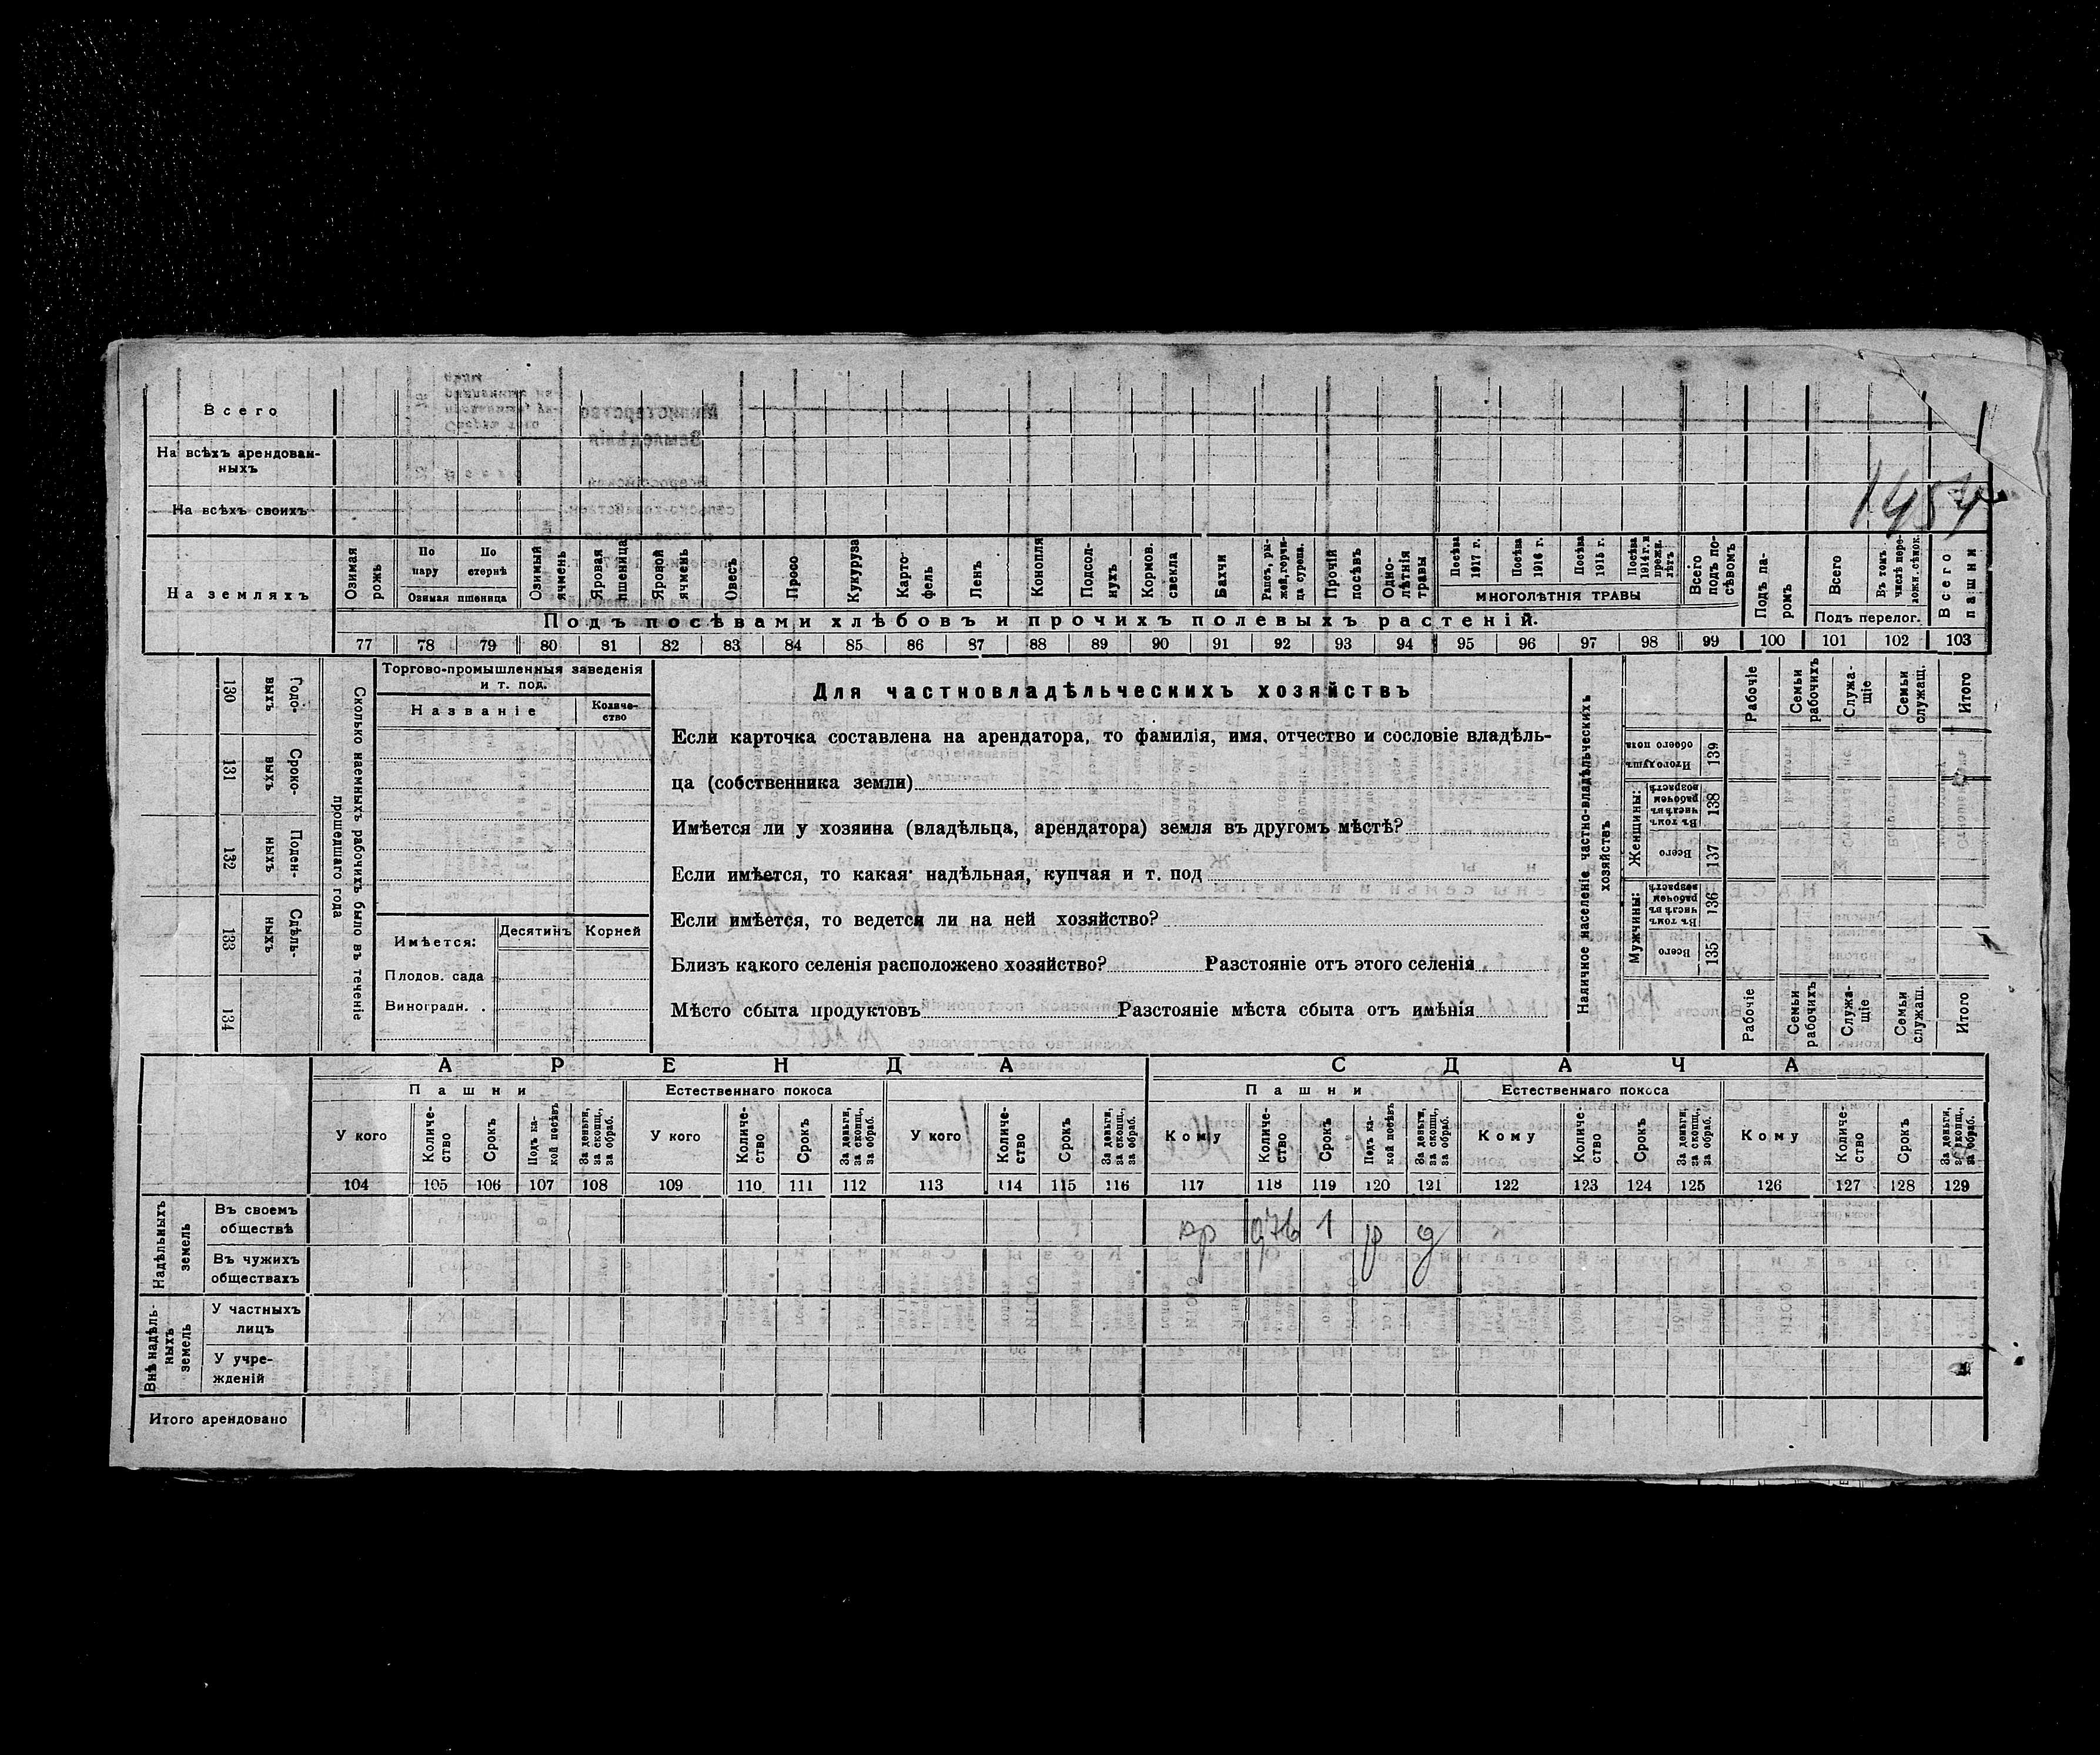 Всего
На всѣхъ арендован-
ныхъ
На всѣхъ своихъ
На земляхъ
Озимая рожь
По пару
По стернѣ
Озимая пшеница
Озимый ячмень
Яровая пшеница
Яровой ячмень
Овесъ
Просо
Кукуруза
Картофель
Ленъ
Конопля
Подсолнухъ
Кормов. свекла
Бахчи
Рапсъ, рыжей, горчица сурепа.
Прочій посѣвъ
Однолѣтнія травы
Посѣва 1917 г.
Посѣва 1916 г.
Посѣва 1915 г.
Посѣва 1914 г. и прежн. лѣтъ
МНОГОЛѢТНІЯ ТРАВЫ
Всего подъ посѣвомъ
Подъ паромъ
Всего
Въ томъ числѣ переложн. сѣнок.
Подъ перелог.
Всего пашни
Подъ посѣвами хлѣбовъ и прочихъ полевыхъ растеній.
77 78 79 80 81 82 83 84 85 86 87 88 89 90 91 92 93 94 95 96 97 98 99 100 101 102 103
130 Годовыхъ
131 Сроковыхъ
132 Поденныхъ
133 Сдѣльныхъ
134
Сколько наемныхъ рабочихъ было въ теченіе
прошедшаго года
Торгово-промышленныя заведенія
и т. под.
Названіе
Количе-
ство
Десятинъ Корней
Имѣется:
Плодов. сада
Виноградн. .
Для частновладѣльческихъ хозяйствъ
Если карточка составлена на арендатора, то фамилія, имя, отчество и сословіе владѣль-
ца (собственника земли)
Имѣется ли у хозяина (владѣльца, арендатора) земля въ другомъ мѣстѣ?
Если имѣется, то какая надѣльная, купчая и т. под
Если имѣется, то ведется ли на ней хозяйство?
Близъ какого селенія расположено хозяйство? Разстояніе отъ этого селенія
Мѣсто сбыта продуктовъ Разстояніе мѣста сбыта отъ имѣнія
Наличное населеніе частно-владѣльческихъ
хозяйствъ
Рабочіе
Семьи рабочихъ
Служащіе
Семьи служащ.
Итого
Итого душъ обоего пола 139
Женщины:
Въ томъ числѣ въ рабочемъ возрастѣ 138
Всего 137
Мужчины:
Въ томъ числѣ въ рабочемъ возрастѣ 136
Всего 135
Рабочіе
Семьи рабочихъ
Служащіе
Семьи служащ.
Итого
АРЕНДА
СДАЧА
Пашни
Естественнаго покоса
Пашни
Естественнаго покоса
У кого
Количество
Срокъ
Подъ какой посѣвъ
За деньги, за скопщ., за обраб.
У кого
Количество
Срокъ
За деньги, за скопщ., за обраб.
У кого
Количество
Срокъ
За деньги, за скопщ., за обраб.
Кому
Количество
Срокъ
Подъ какой посѣвъ
За деньги, за скопщ., за обраб.
Кому
Количество
Срокъ
За деньги, за скопщ., за обраб.
Кому
Количество
Срокъ
За деньги, за скопщ., за обраб.
104 105 106 107 108 109 110 111 112 113 114 115 116 117 118 119 120 121 122 123 124 125 126 127 128 129
Надѣльныхъ земель
Въ своемъ
обществѣ
кр 0,76 1 р д
Въ чужихъ
обществахъ
Внѣ надѣльныхъ земель
У частныхъ
лицъ
У учре-
жденій
Итого арендовано